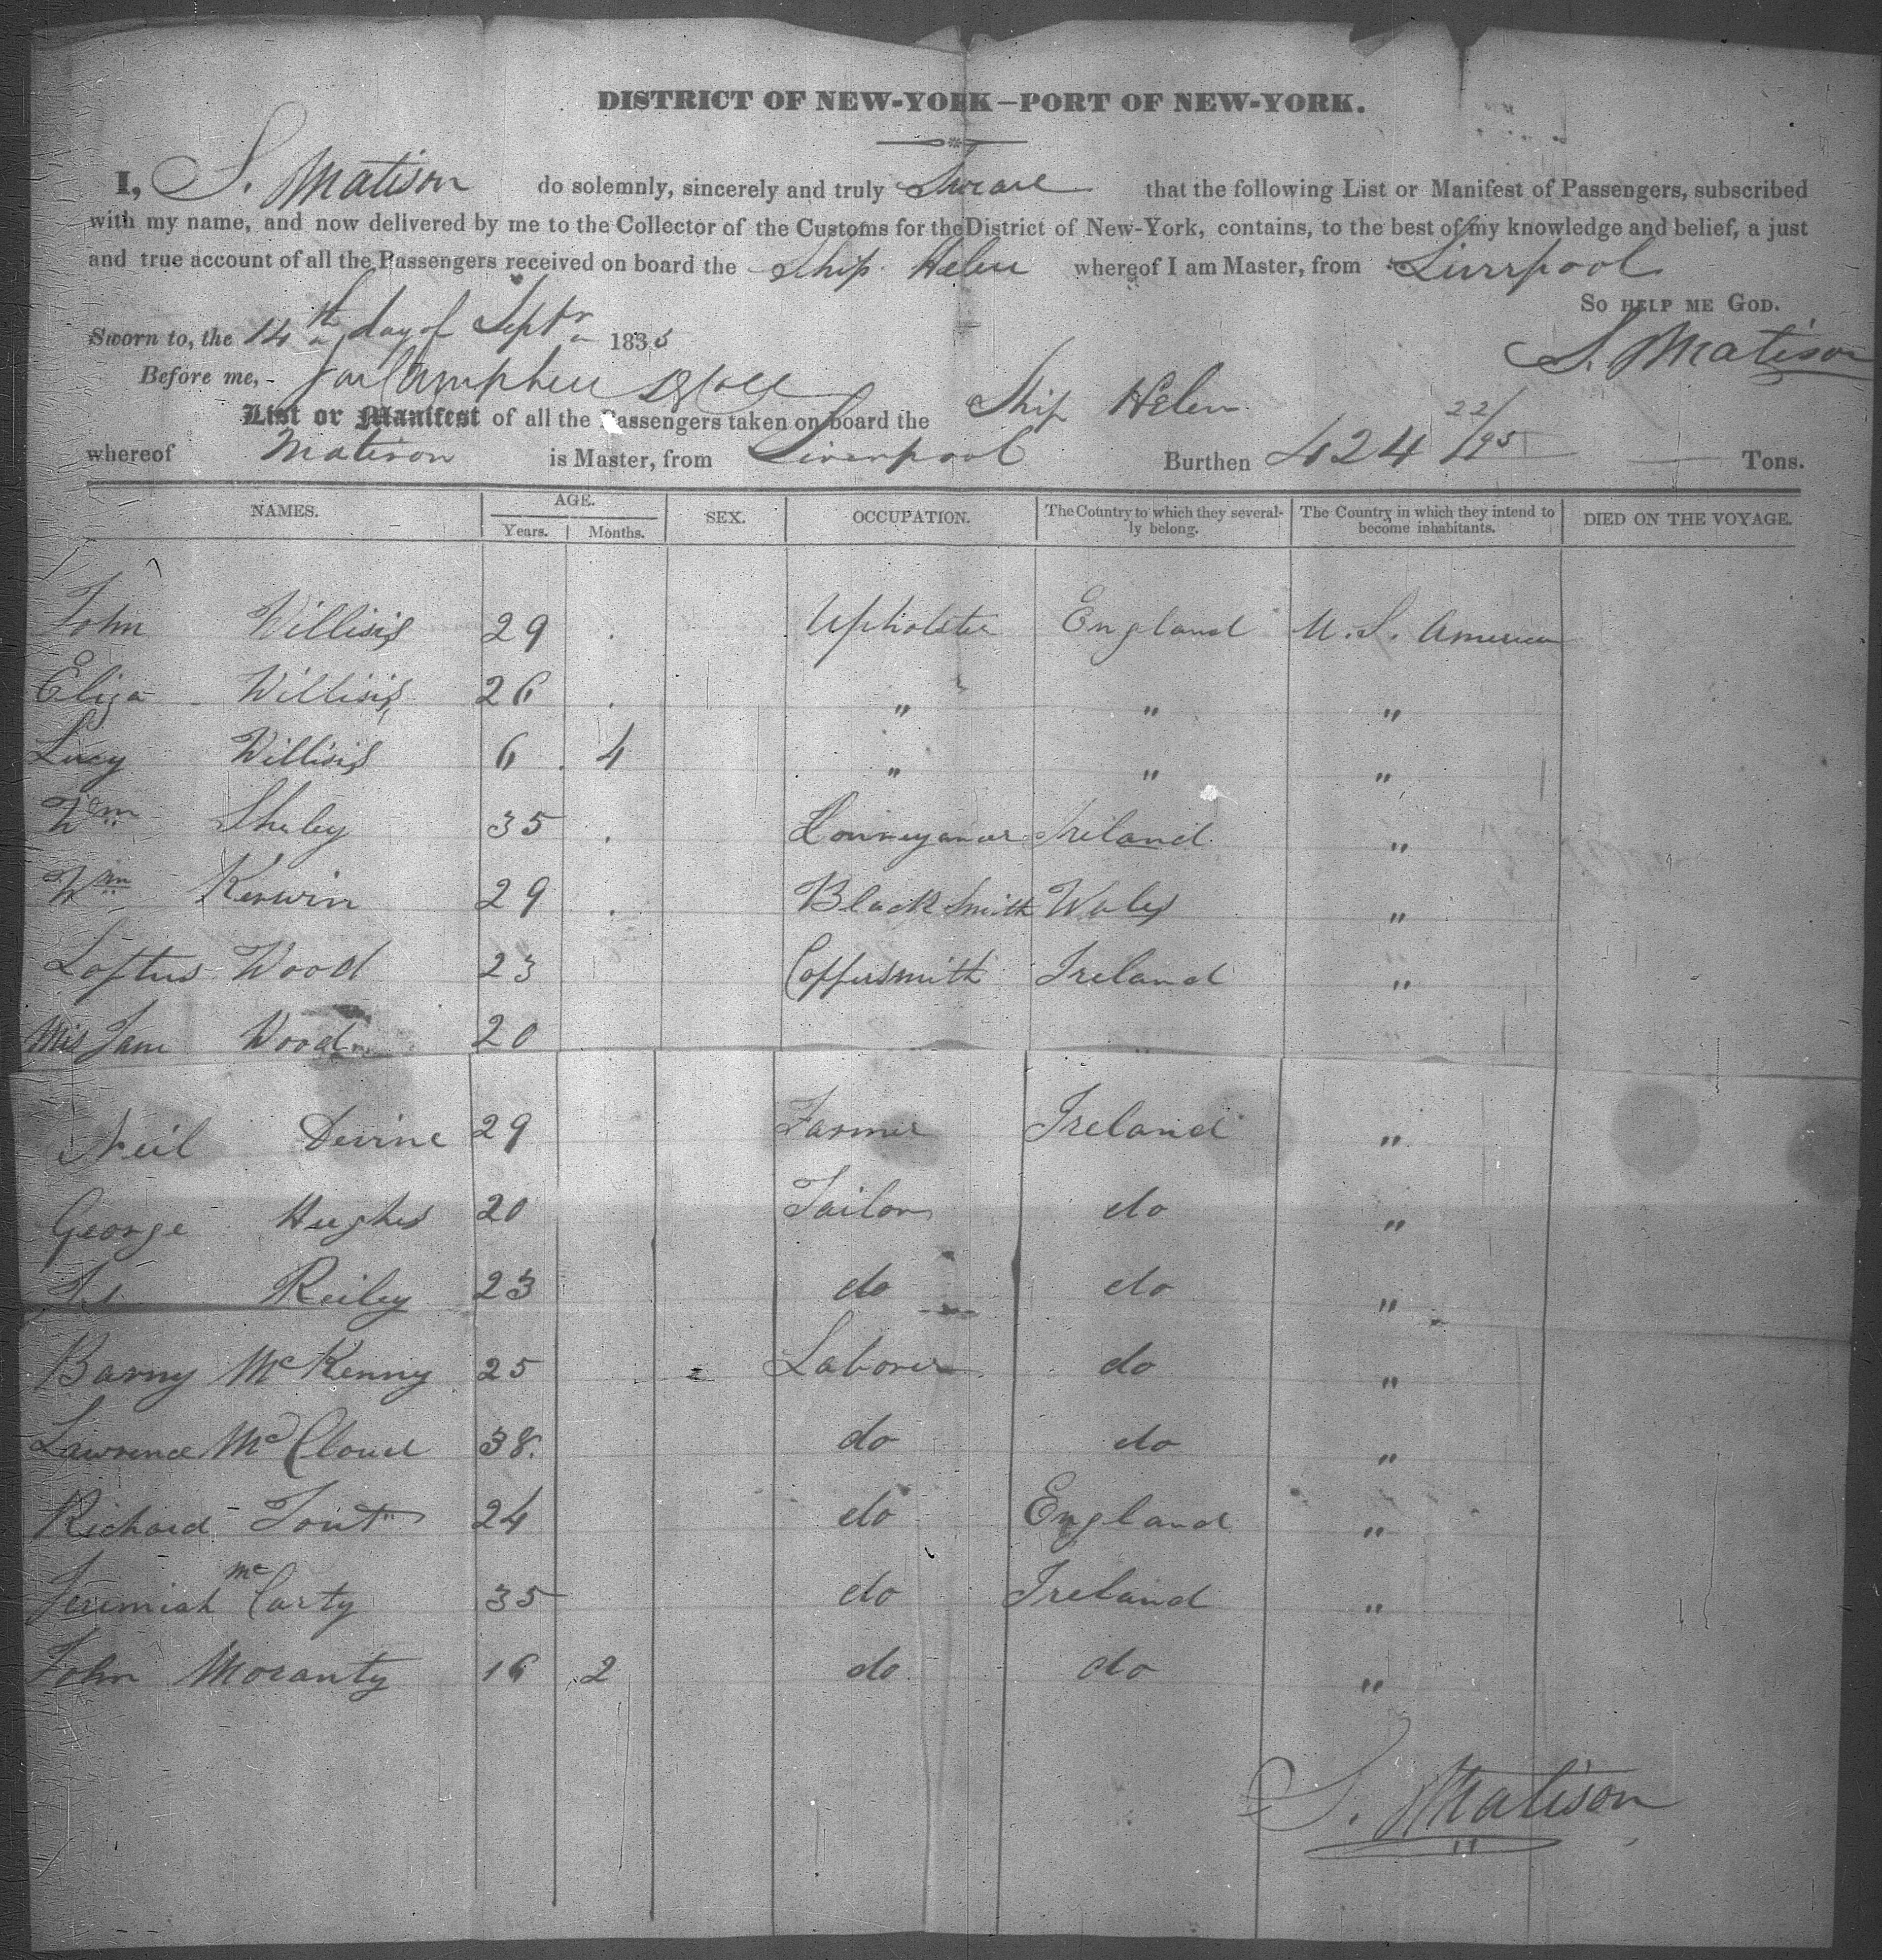 DISTRICT OF NEW-YORK—PORT OF NEW-YORK.
I, S. Matison do solemnly, sincerely and truly Sweare that the following List or Manifest of Passengers, subscribed
with my name, and now delivered by me to the Collector of the Customs for the District of New-York, contains, to the best of my knowledge and belief, a just
and true account of all the Passengers received on board the Ship Helen whereof I am Master, from Liverpool
SO HELP ME GOD.
Sworn to, the 14th day of Septr 1835
S. Matison
Before me,
List or Manifest of all the Passengers taken on board the Ship Helen
whereof Matison is Master, from Liverpool Burthen 424 22/95 Tons.
NAMES. AGE. SEX. OCCUPATION. The Country to which they several- The Country in which they intend to DIED ON THE VOYAGE.
Years. Months. ly belong. become inhabitants.
John Willisis 29 . Upholster England U.S. America
Eliza Willisis 26 . " " "
Lucy Willisis 6 . 4 " " "
Wm Sheley 35 . Ireland "
Wm Kerwin 29 . Black Smith Wales "
Loftus Wood 23 Coppersmith Ireland "
Mis Jane Wood 20
Neil Devine 29 Farmer Ireland "
George Hughes 20 Tailor do "
Reiley 23 do do "
Barny McKenny 25 Laborer do "
Lawrence McCloud 38. do do "
Richard Tout 24 do England "
Jeremiah McCarty 35 do Ireland "
John Moranty 16 2 do do "
S. Matison